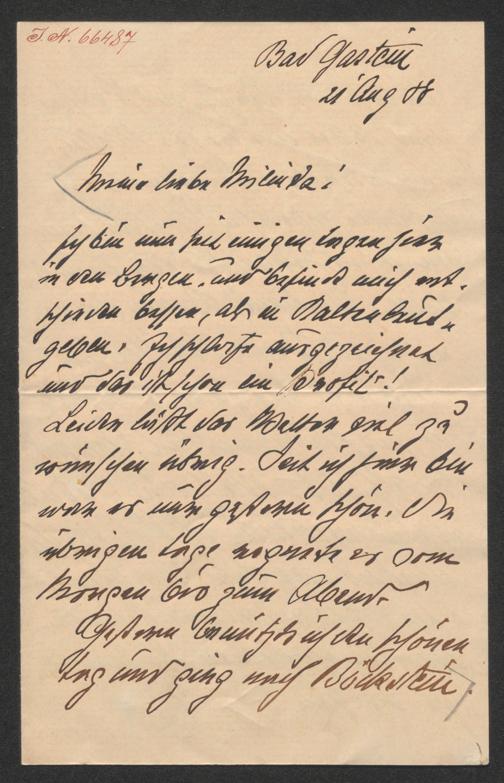 J.N. 66487
Bad Gastein
21 Aug 88
Meine liebe Milinka!
Ich bin nun seit einigen tagen hier
in den Bergen, und befinde mich ent-
schieden besser, als in Kaltenleut-
geben. Ich schlafe ausgezeichnet
und das ist schon ein Profit!
Leider läßt das Wetter viel zu
wünschen übrig. Seit ich hier bin
war es nur gestern schön. Die
übrigen tage regnete es vom
Morgen bis zum Abend.
Gestern benützte ich den schönen
tag und ging nach Böckstein,